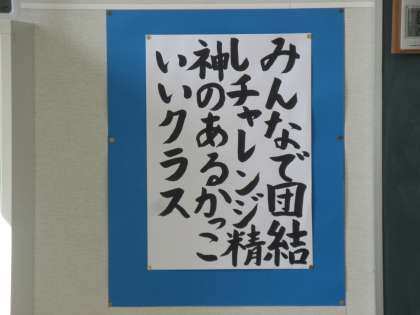 みんなで団結
しチャレンジ精
神のあるかっこ
いいクラス